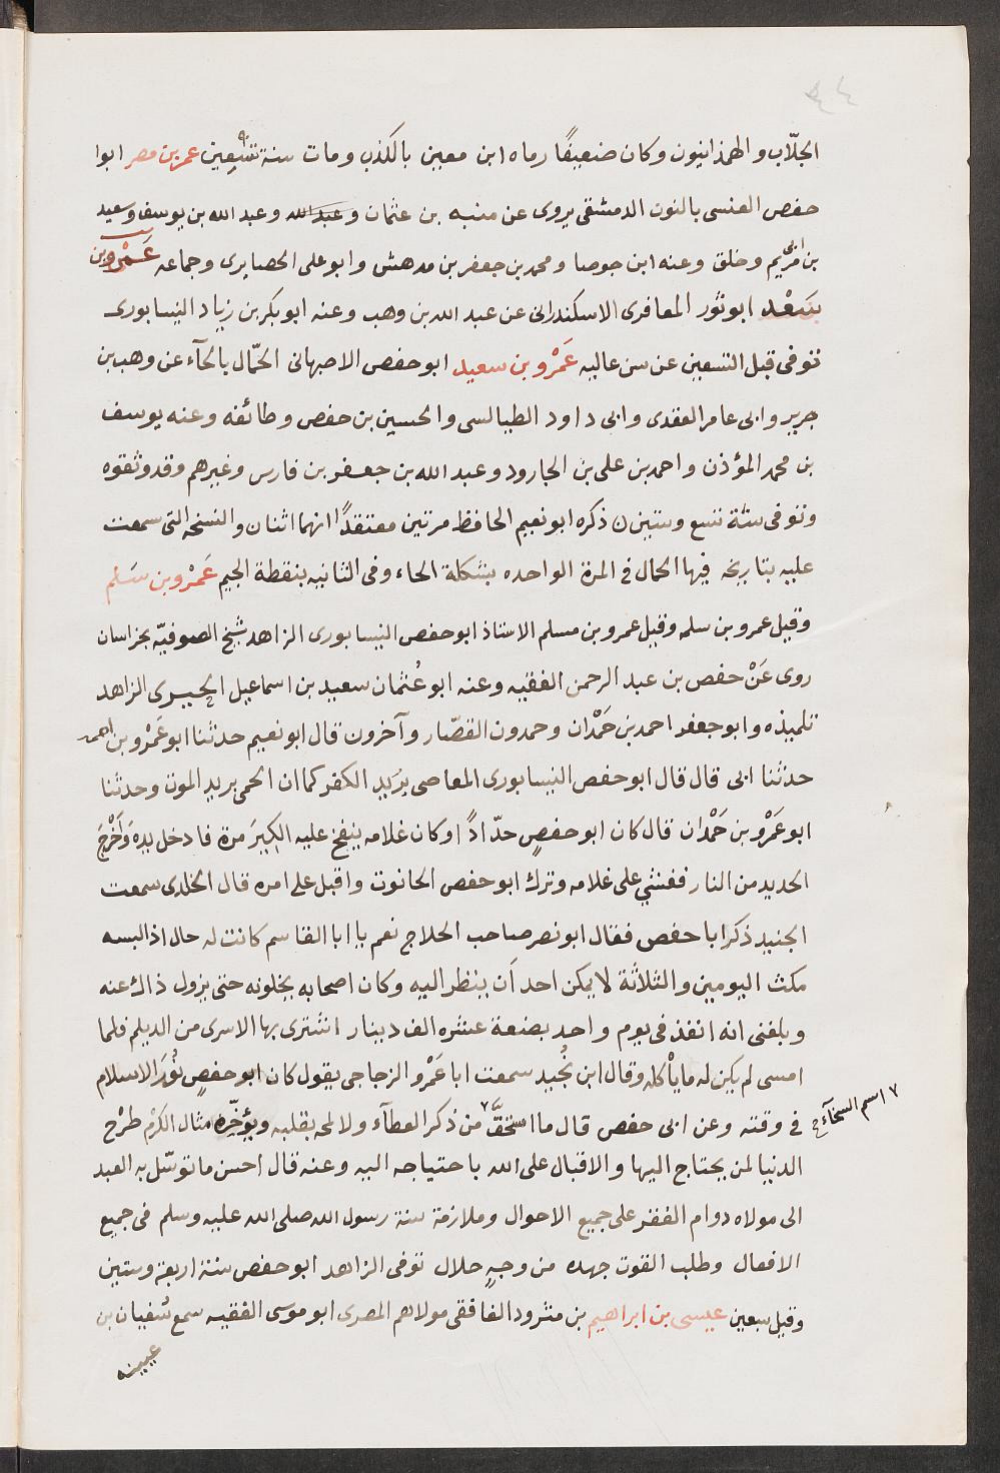 الجلّاب والهمذانيون وكان ضعيفًا رماه ابن معين بالكذب ومات سنة تسعين عمر بن مضر ابوا
حفص العنسى بالنون الدمشقى يروى عن منبه بن عثمان وعبد الله وعبد الله بن يوسف وسعيد
بن ابى مريم وخلق وعنه ابن جوصا ومحمد بن جعفر بن مدهش وابو على الحصايرى وجماعه عَمْرو بن
سَعْد ابو ثور المعافرى الاسكندرانى عن عبد الله بن وهب وعنه ابو بكر بن زياد النيسابورى
توفى قبل التسعين عن سن عاليه عَمْرو بن سعيد ابو حفص الاصبهانى الحمّال بالحآء عن وهب بن
جرير وابى عامر العقدى وابى داود الطيالسى والحسين بن حفص وطائفه وعنه يوسف
بن محمد المؤذن واحمد بن على بن الجارود وعبد الله بن جعفر بن فارس وغيرهم وقد وثقوه
وتوفى سنة تسع وستين ن ذكره ابو نعيم الحافظ مرتين معتقدًا انهما اثنان والنسخه التى سمعت
عليه بتاريخه فيها الحمال فى المرة الواحده بشكلة الحاء وفى الثانيه بنقطة الجيم عَمْرو بن سَلم
وقيل عمرو بن سلمه وقيل عمرو بن مسلم الاستاذ ابو حفص النيسابورى الزاهد شيخ الصوفيّه بخراسان
روى عَنْ حفص بن عبد الرحمن الفقيه وعنه ابو عُثمان سعيد بن اسماعيل الحيرى الزاهد
تلميذه وابو جعفر احمد بن حَمْدان وحمدون القصّار وآخرون قال ابو نعيم حدثنا ابو عَمْرو بن احمد
حدثنا ابى قال قال ابو حفص النيسابورى المعاصى بَرِيد الكفر كما ان الحمى بريد الموت وحدثنا
ابو عَمْرو بن حَمْدان قال كان ابو حفصٍ حدّادًا وكان غلامه ينفخ عليه الكِيرَ مرة فادخل يده وَاَخْرَجَ
الحديد من النار فغشي على غلامه وترك ابو حفص الحانوت واقبل على امره قال الخلدى سمعت
الجنيد ذكر ابا حفص فقال ابو نصر صاحب الحلاج نعم يا ابا القاسم كانت له حال اذا لبسه
مكث اليومين والثلاثة لا يمكن احد اَن ينظر اليه وكان اصحابه يخلونه حتى يزول ذاك عنه
وبلغنى انه انفذ فى يوم واحد بضعة عشره الف دينار اشترى بها الاسرى من الديلم فلما
امسى لم يكن له ما ياْكله وقال ابن نُجُيد سمعت ابا عَمْرو الزجاجى يقول كان ابو حفصٍ نُورَ الاسلام
فى وقته وعن ابى حفص قال ما استحقَّ ٧ من ذكر العطآء ولا لمحه بقلبه ويؤخّره مثال الكرْم طرْح
٧ اسم السخآء صح
الدنيا لمن يحتاج اليها والاقبال على الله باحتياجه اليه وعنه قال احسن ما توسّل به العبد
الى مولاه دوام الفقر على جميع الاحوال وملازمة سنة رسول الله صلى الله عليه وسلم فى جميع
الافعال وطلب القوت جهده من وجهٍ حلال توفى الزاهد ابو حفص سنة اربعة وستين
وقيل سبعين عيسى بن ابراهيم بن مثرود الغافقى مولاهم المصرى ابو موسى الفقيه سمع سُفيان بن
عيينه